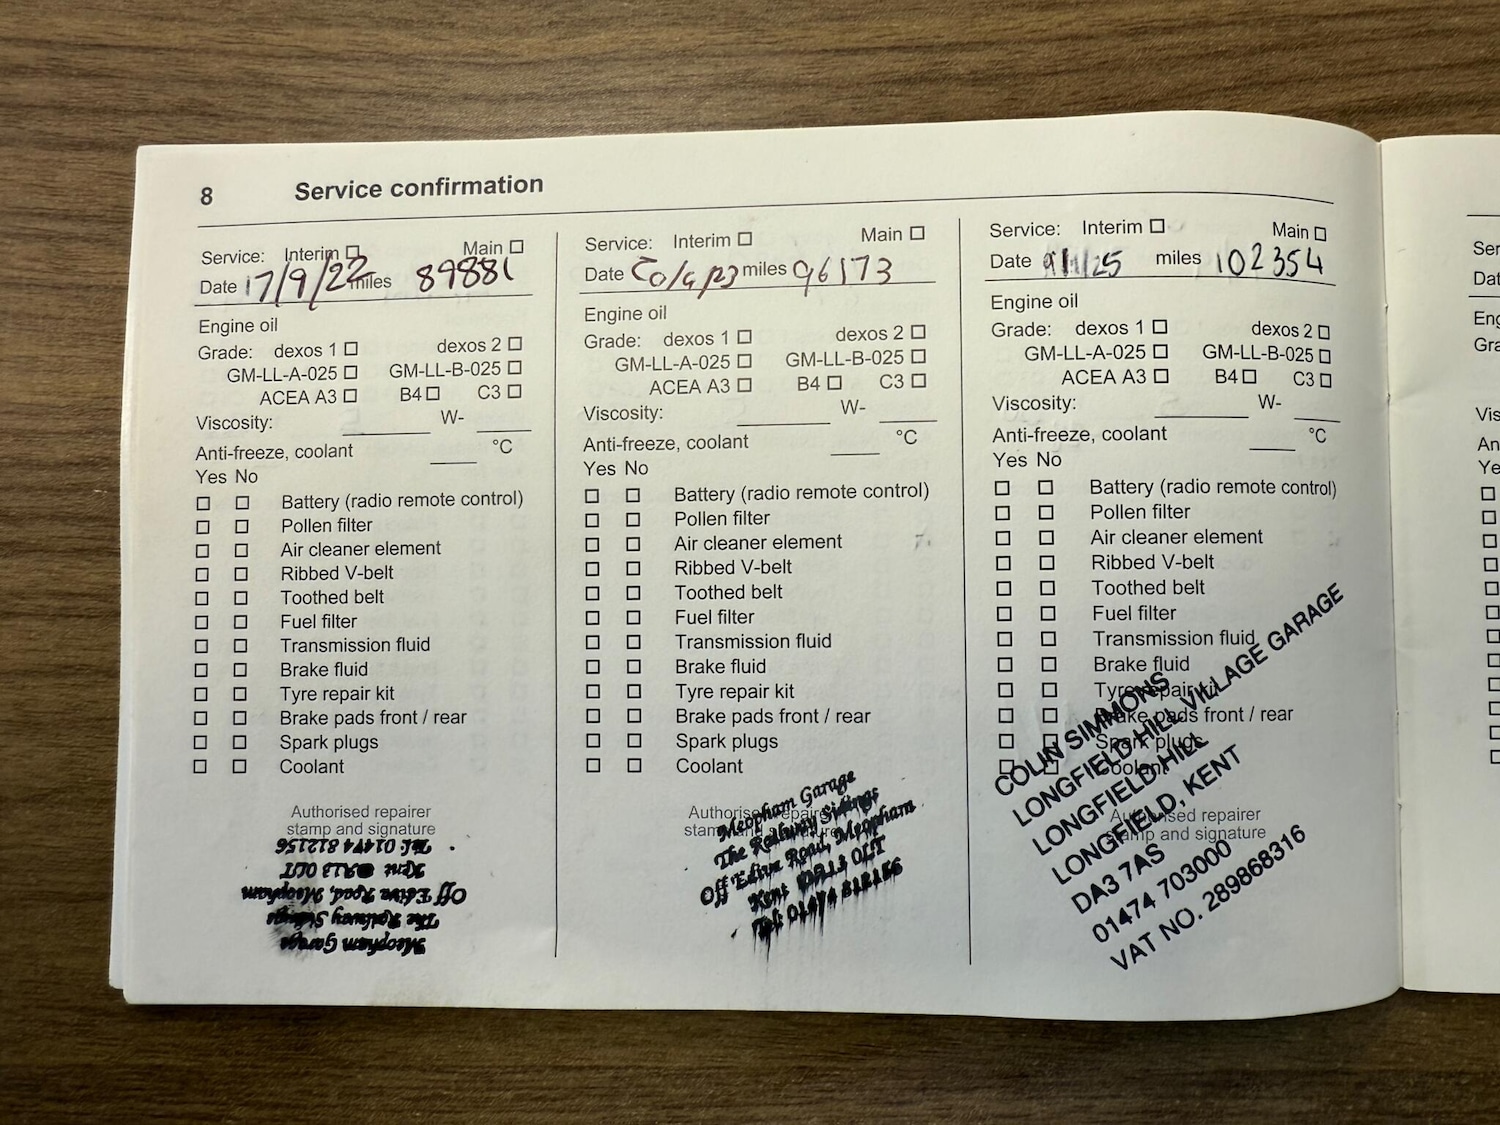 8 Service confirmation
Service: Interim Main
Date 17/9/22 miles 89881
Engine oil
Grade: dexos 1 dexos 2
GM-LL-A-025 GM-LL-B-025
ACEA A3 B4 C3
Viscosity: W-
Anti-freeze, coolant °C
Yes No
Battery (radio remote control)
Pollen filter
Air cleaner element
Ribbed V-belt
Toothed belt
Fuel filter
Transmission fluid
Brake fluid
Tyre repair kit
Brake pads front / rear
Spark plugs
Coolant
Authorised repairer
stamp and signature
Meopham Garage
The Railway Sidings
Off Ediva Road, Meopham
Kent DA13 0LT
Tel: 01474 812156
Service: Interim Main
Date miles 96173
Engine oil
Grade: dexos 1 dexos 2
GM-LL-A-025 GM-LL-B-025
ACEA A3 B4 C3
Viscosity: W-
Anti-freeze, coolant °C
Yes No
Battery (radio remote control)
Pollen filter
Air cleaner element
Ribbed V-belt
Toothed belt
Fuel filter
Transmission fluid
Brake fluid
Tyre repair kit
Brake pads front / rear
Spark plugs
Coolant
Authorised repairer
stamp and signature
Meopham Garage
The Railway Sidings
Off Ediva Road, Meopham
Kent DA13 0LT
Tel: 01474 812156
Service: Interim Main
Date 9/1/25 miles 102354
Engine oil
Grade: dexos 1 dexos 2
GM-LL-A-025 GM-LL-B-025
ACEA A3 B4 C3
Viscosity: W-
Anti-freeze, coolant °C
Yes No
Battery (radio remote control)
Pollen filter
Air cleaner element
Ribbed V-belt
Toothed belt
Fuel filter
Transmission fluid
Brake fluid
Tyre repair kit
Brake pads front / rear
Spark plugs
Coolant
Authorised repairer
stamp and signature
COLIN SIMMONS
LONGFIELD HILL VILLAGE GARAGE
LONGFIELD HILL
LONGFIELD, KENT
DA3 7AS
01474 703000
VAT NO. 289868316